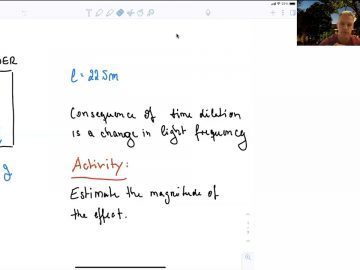 DER
l = 22.5m
Consequence of time dilation
is a change in light frequency
Activity:
Estimate the magnitude of
the effect.